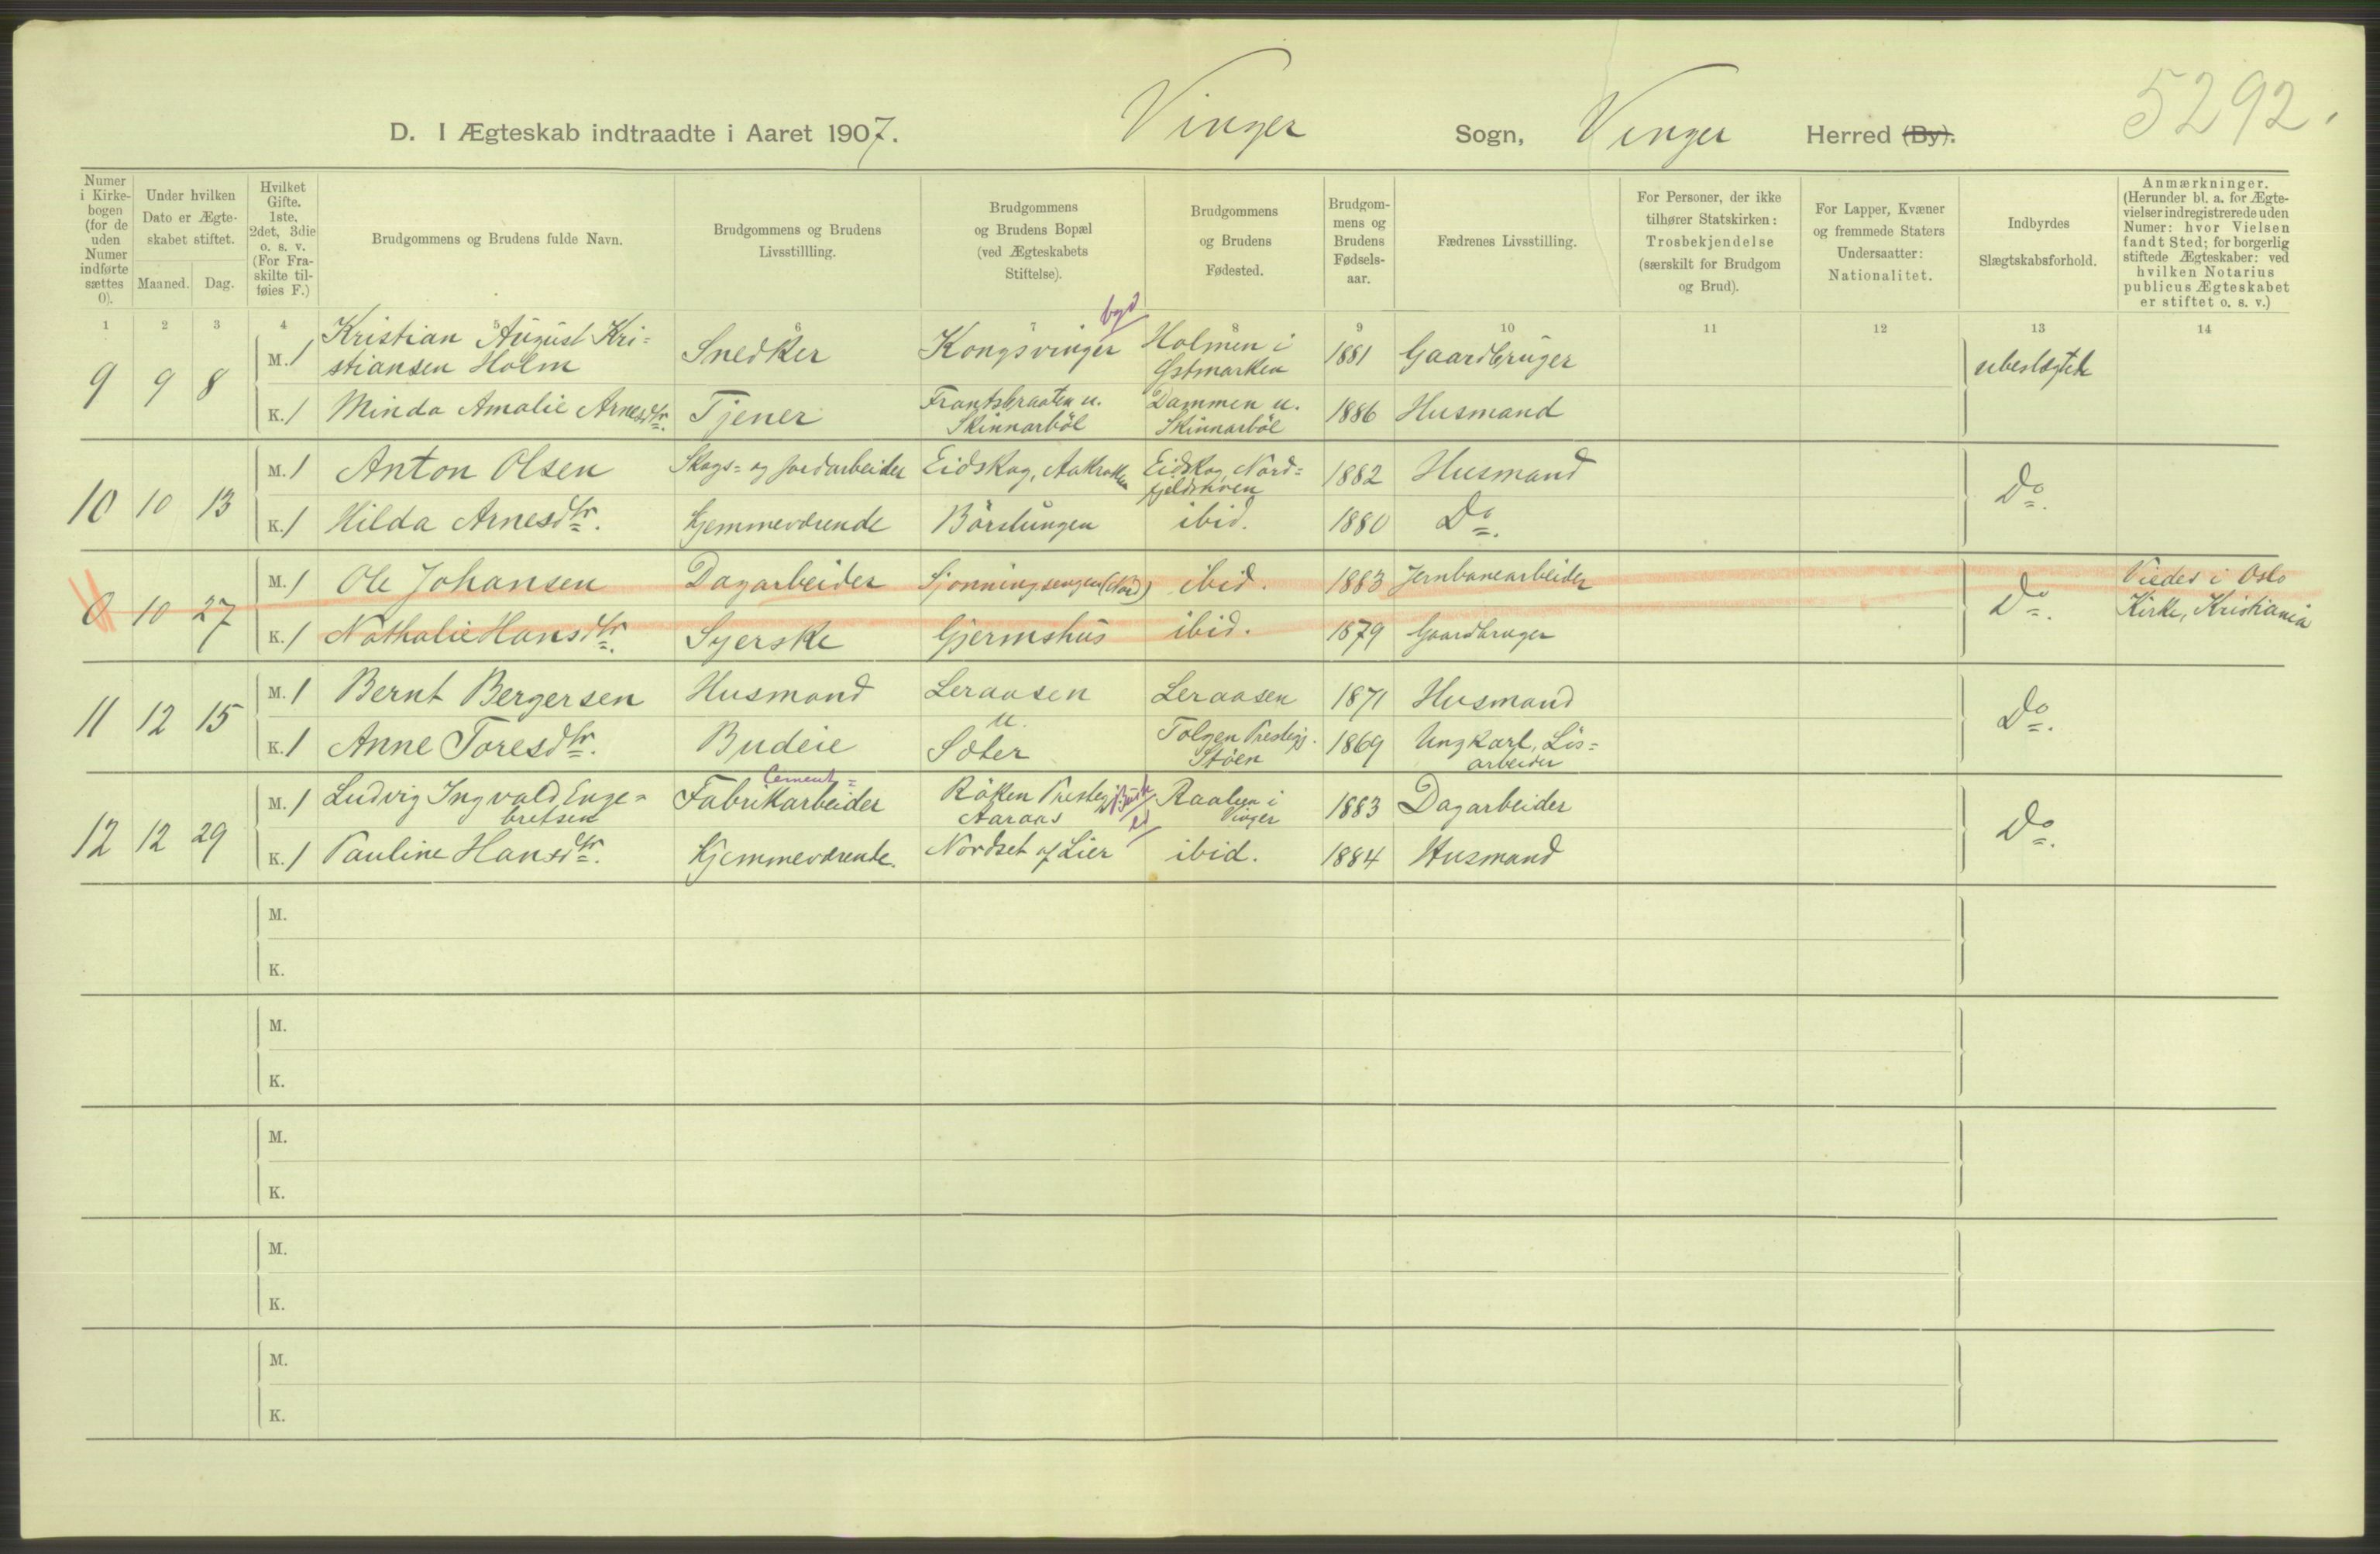 5292.
D. I Ægteskab indtraadte i Aaret 1907. Vinger Sogn, Vinger Herred (By).
Numer i Kirkebogen (for de uden Numer indførte sættes 0).
Under hvilken Dato er Ægteskabet stiftet.
Maaned. Dag.
Hvilket Gifte. 1ste, 2det, 3die o. s. v. (For Fraskilte tilføies F.)
Brudgommens og Brudens fulde Navn.
Brudgommens og Brudens Livsstillling.
Brudgommens og Brudens Bopæl (ved Ægteskabets Stiftelse).
Brudgommens og Brudens Fødested.
Brudgommens og Brudens Fødselsaar.
Fædrenes Livsstilling.
For Personer, der ikke tilhører Statskirken: Trosbekjendelse (særskilt for Brudgom og Brud).
For Lapper, Kvæner og fremmede Staters Undersaatter: Nationalitet.
Indbyrdes Slægtskabsforhold.
Anmærkninger. (Herunder bl. a. for Ægtevielser indregistrerede uden Numer: hvor Vielsen fandt Sted; for borgerlig stiftede Ægteskaber: ved hvilken Notarius publicus Ægteskabet er stiftet o. s. v.)
1 2 3 4 5 6 7 8 9 10 11 12 13 14
9 9 8 M. 1 Kristian August Kri=
stiansen Holm Snedker Kongsvinger by Holmen i
Østmarken 1881 Gaardbruger ubeslægtede
K. 1 Minda Amalie Arnesdtr. Tjener Frantsbraaten u.
Skinnarböl Dammen u.
Skinnarböl 1886 Husmand
10 10 13 M. 1 Anton Olsen Skogs= og Jordarbeider Eidskog, Eidskog, Nord=
1882 Husmand Do.
K. 1 Hilda Arnesdtr. Hjemmeværende Börslungen ibid. 1880 Do.
0 10 27 M. 1 Ole Johansen Dagarbeider Sjonningsengen (Nord) ibid. 1883 Jernbanearbeider Do. Viedes i Oslo
Kirke, Kristiania
K. 1 Nathalie Hansdtr. Syerske Gjermshus ibid. 1879 Gaardbruger
11 12 15 M. 1 Bernt Bergersen Husmand Leraasen Leraasen 1871 Husmand Do.
K. 1 Anne Toresdtr. Budeie u.
Sæter Tolgen Prestegj.
Støen 1869 Ungkarl, Løs=
arbeider
12 12 29 M. 1 Ludvig Ingvald Enge=
bretsen Cement=
Fabrikarbeider Röken Prestegj.
Aaraas Raalien i
Vinger 1883 Dagarbeider Do.
K. 1 Pauline Hansdtr. Hjemmeværende. Nordset af Lier ibid. 1884 Husmand
M.
K.
M.
K.
M.
K.
M.
K.
M.
K.